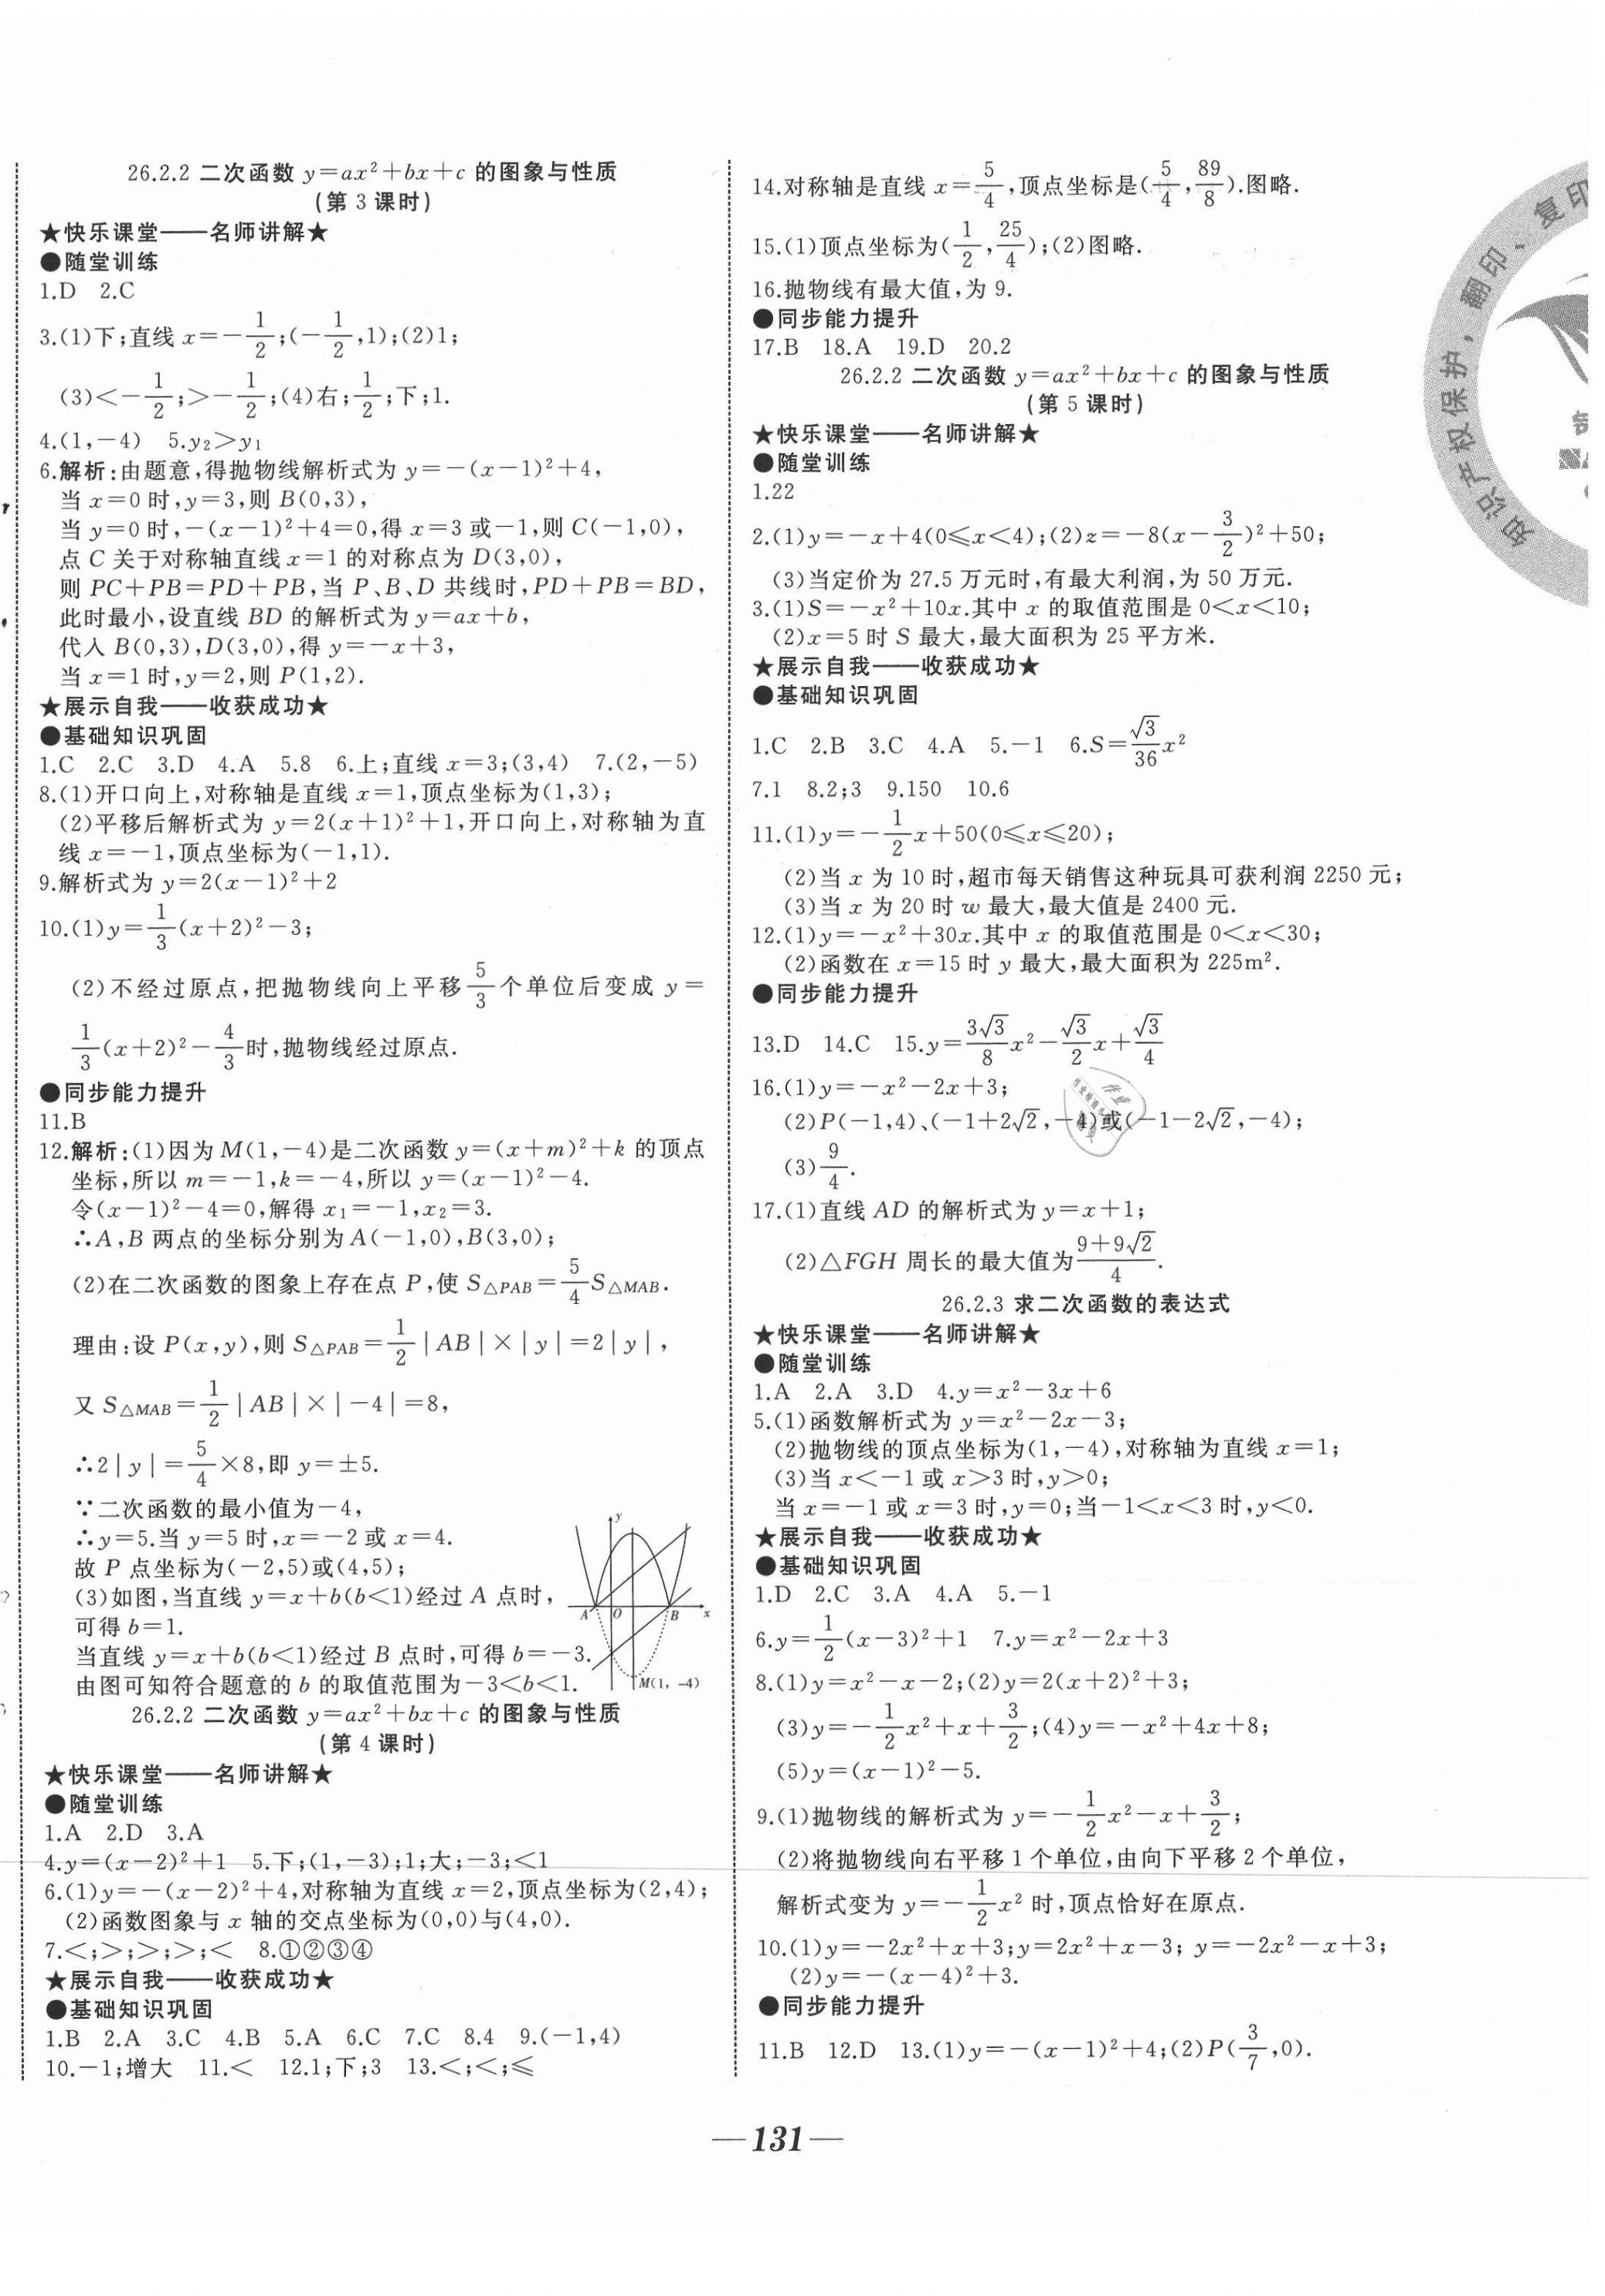 26.2.2 二次函数 y=ax²+bx+c 的图象与性质
(第 3 课时)
★快乐课堂——名师讲解★
●随堂训练
1.D 2.C
3.(1)下;直线 x=-1/2;(-1/2,1);(2)1;
(3)<-1/2;>-1/2;(4)右;1/2;下;1.
4.(1,-4) 5.y₂>y₁
6.解析:由题意,得抛物线解析式为 y=-(x-1)²+4,
当 x=0 时,y=3,则 B(0,3),
当 y=0 时,-(x-1)²+4=0,得 x=3 或-1,则 C(-1,0),
点 C 关于对称轴直线 x=1 的对称点为 D(3,0),
则 PC+PB=PD+PB,当 P、B、D 共线时,PD+PB=BD,
此时最小,设直线 BD 的解析式为 y=ax+b,
代入 B(0,3),D(3,0),得 y=-x+3,
当 x=1 时,y=2,则 P(1,2).
★展示自我——收获成功★
●基础知识巩固
1.C 2.C 3.D 4.A 5.8 6.上;直线 x=3;(3,4) 7.(2,-5)
8.(1)开口向上,对称轴是直线 x=1,顶点坐标为(1,3);
(2)平移后解析式为 y=2(x+1)²+1,开口向上,对称轴为直
线 x=-1,顶点坐标为(-1,1).
9.解析式为 y=2(x-1)²+2
10.(1)y=1/3(x+2)²-3;
(2)不经过原点,把抛物线向上平移5/3个单位后变成 y=
1/3(x+2)²-4/3时,抛物线经过原点.
●同步能力提升
11.B
12.解析:(1)因为 M(1,-4)是二次函数 y=(x+m)²+k 的顶点
坐标,所以 m=-1,k=-4,所以 y=(x-1)²-4.
令(x-1)²-4=0,解得 x₁=-1,x₂=3.
∴A,B 两点的坐标分别为 A(-1,0),B(3,0);
(2)在二次函数的图象上存在点 P,使 S△PAB=5/4 S△MAB.
理由:设 P(x,y),则 S△PAB=1/2|AB|×|y|=2|y|,
又 S△MAB=1/2|AB|×|-4|=8,
∴2|y|=5/4×8,即 y=±5.
∵二次函数的最小值为-4,
∴y=5.当 y=5 时,x=-2 或 x=4.
故 P 点坐标为(-2,5)或(4,5);
(3)如图,当直线 y=x+b(b<1)经过 A 点时,
可得 b=1.
当直线 y=x+b(b<1)经过 B 点时,可得 b=-3.
由图可知符合题意的 b 的取值范围为-3<b<1.
y
A O B x
M(1, -4)
26.2.2 二次函数 y=ax²+bx+c 的图象与性质
(第 4 课时)
★快乐课堂——名师讲解★
●随堂训练
1.A 2.D 3.A
4.y=(x-2)²+1 5.下;(1,-3);1;大;-3;<1
6.(1)y=-(x-2)²+4,对称轴为直线 x=2,顶点坐标为(2,4);
(2)函数图象与 x 轴的交点坐标为(0,0)与(4,0).
7.<;>;>;>;< 8.①②③④
★展示自我——收获成功★
●基础知识巩固
1.B 2.A 3.C 4.B 5.A 6.C 7.C 8.4 9.(-1,4)
10.-1;增大 11.< 12.1;下;3 13.<;<;≤
14.对称轴是直线 x=5/4,顶点坐标是(5/4,89/8).图略.
15.(1)顶点坐标为(1/2,25/4);(2)图略.
16.抛物线有最大值,为 9.
●同步能力提升
17.B 18.A 19.D 20.2
26.2.2 二次函数 y=ax²+bx+c 的图象与性质
(第 5 课时)
★快乐课堂——名师讲解★
●随堂训练
1.22
2.(1)y=-x+4(0≤x<4);(2)z=-8(x-3/2)²+50;
(3)当定价为 27.5 万元时,有最大利润,为 50 万元.
3.(1)S=-x²+10x.其中 x 的取值范围是 0<x<10;
(2)x=5 时 S 最大,最大面积为 25 平方米.
★展示自我——收获成功★
●基础知识巩固
1.C 2.B 3.C 4.A 5.-1 6.S=√3/36 x²
7.1 8.2;3 9.150 10.6
11.(1)y=-1/2x+50(0≤x≤20);
(2)当 x 为 10 时,超市每天销售这种玩具可获利润 2250 元;
(3)当 x 为 20 时 w 最大,最大值是 2400 元.
12.(1)y=-x²+30x.其中 x 的取值范围是 0<x<30;
(2)函数在 x=15 时 y 最大,最大面积为 225m².
●同步能力提升
13.D 14.C 15.y=3√3/8 x²-√3/2 x+√3/4
16.(1)y=-x²-2x+3;
(2)P(-1,4)、(-1+2√2,-4)或(-1-2√2,-4);
(3)9/4.
17.(1)直线 AD 的解析式为 y=x+1;
(2)△FGH 周长的最大值为(9+9√2)/4.
26.2.3 求二次函数的表达式
★快乐课堂——名师讲解★
●随堂训练
1.A 2.A 3.D 4.y=x²-3x+6
5.(1)函数解析式为 y=x²-2x-3;
(2)抛物线的顶点坐标为(1,-4),对称轴为直线 x=1;
(3)当 x<-1 或 x>3 时,y>0;
当 x=-1 或 x=3 时,y=0;当-1<x<3 时,y<0.
★展示自我——收获成功★
●基础知识巩固
1.D 2.C 3.A 4.A 5.-1
6.y=1/2(x-3)²+1 7.y=x²-2x+3
8.(1)y=x²-x-2;(2)y=2(x+2)²+3;
(3)y=-1/2x²+x+3/2;(4)y=-x²+4x+8;
(5)y=(x-1)²-5.
9.(1)抛物线的解析式为 y=-1/2x²-x+3/2;
(2)将抛物线向右平移 1 个单位,由向下平移 2 个单位,
解析式变为 y=-1/2x² 时,顶点恰好在原点.
10.(1)y=-2x²+x+3;y=2x²+x-3; y=-2x²-x+3;
(2)y=-(x-4)²+3.
●同步能力提升
11.B 12.D 13.(1)y=-(x-1)²+4;(2)P(3/7,0).
—131—
知识产权保护,翻印、复印